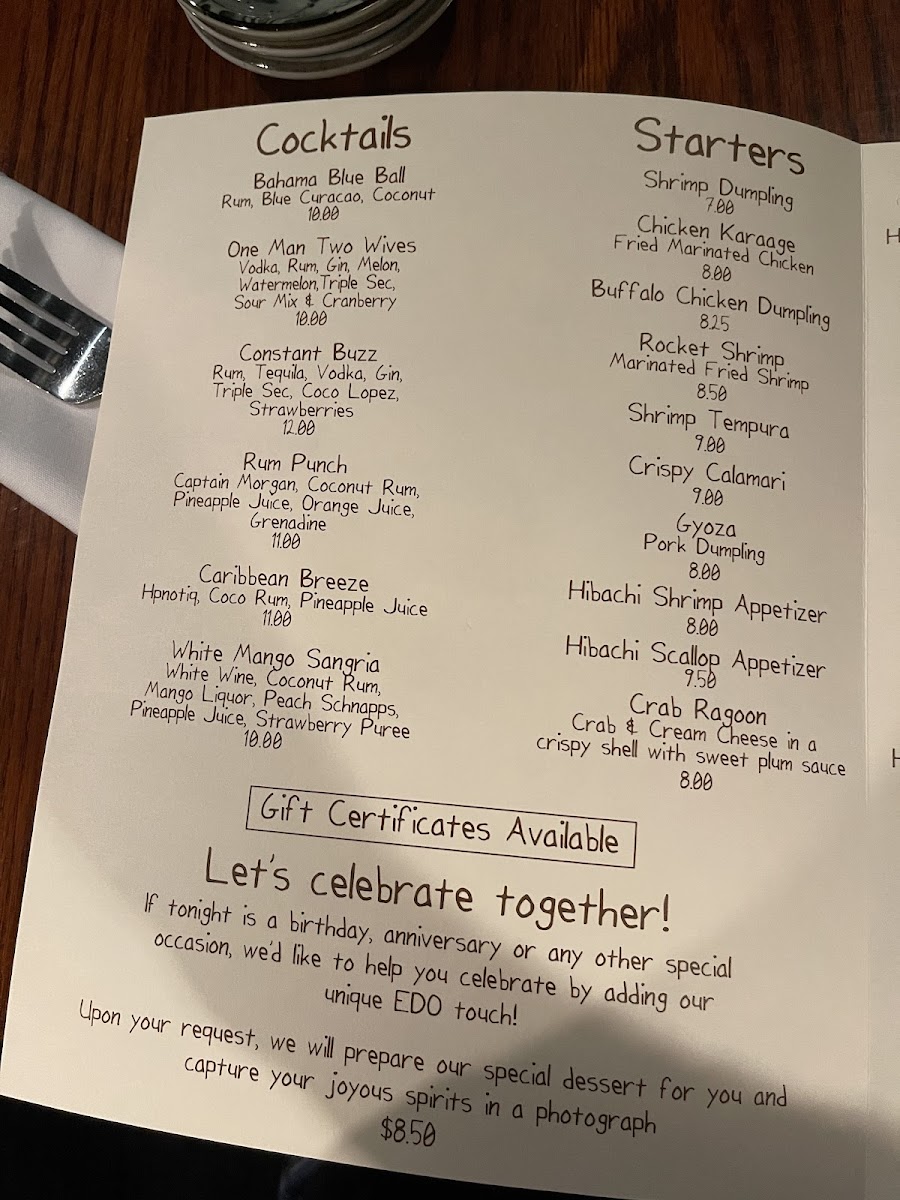 Cocktails
Bahama Blue Ball
Rum, Blue Curacao, Coconut
10.00
One Man Two Wives
Vodka, Rum, Gin, Melon,
Watermelon,Triple Sec,
Sour Mix & Cranberry
10.00
Constant Buzz
Rum, Tequila, Vodka, Gin,
Triple Sec, Coco Lopez,
Strawberries
12.00
Rum Punch
Captain Morgan, Coconut Rum,
Pineapple Juice, Orange Juice,
Grenadine
11.00
Caribbean Breeze
Hpnotiq, Coco Rum, Pineapple Juice
11.00
White Mango Sangria
White Wine, Coconut Rum,
Mango Liquor, Peach Schnapps,
Pineapple Juice, Strawberry Puree
10.00
Starters
Shrimp Dumpling
7.00
Chicken Karaage
Fried Marinated Chicken
8.00
Buffalo Chicken Dumpling
8.25
Rocket Shrimp
Marinated Fried Shrimp
8.50
Shrimp Tempura
9.00
Crispy Calamari
9.00
Gyoza
Pork Dumpling
8.00
Hibachi Shrimp Appetizer
8.00
Hibachi Scallop Appetizer
9.50
Crab Ragoon
Crab & Cream Cheese in a
crispy shell with sweet plum sauce
8.00
Gift Certificates Available
Let's celebrate together!
If tonight is a birthday, anniversary or any other special
occasion, we'd like to help you celebrate by adding our
unique EDO touch!
Upon your request, we will prepare our special dessert for you and
capture your joyous spirits in a photograph
$8.50
H
H